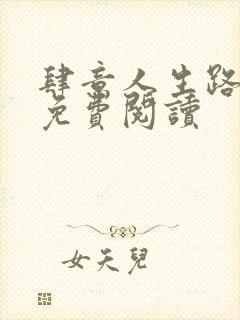 肆意人生路
免費閱讀
女天兒